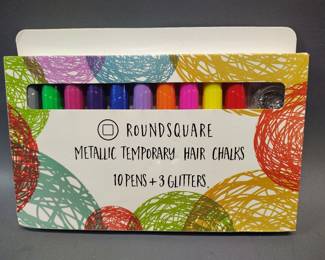 ROUNDSQUARE
METALLIC TEMPORARY HAIR CHALKS
10 PENS + 3 GLITTERS.